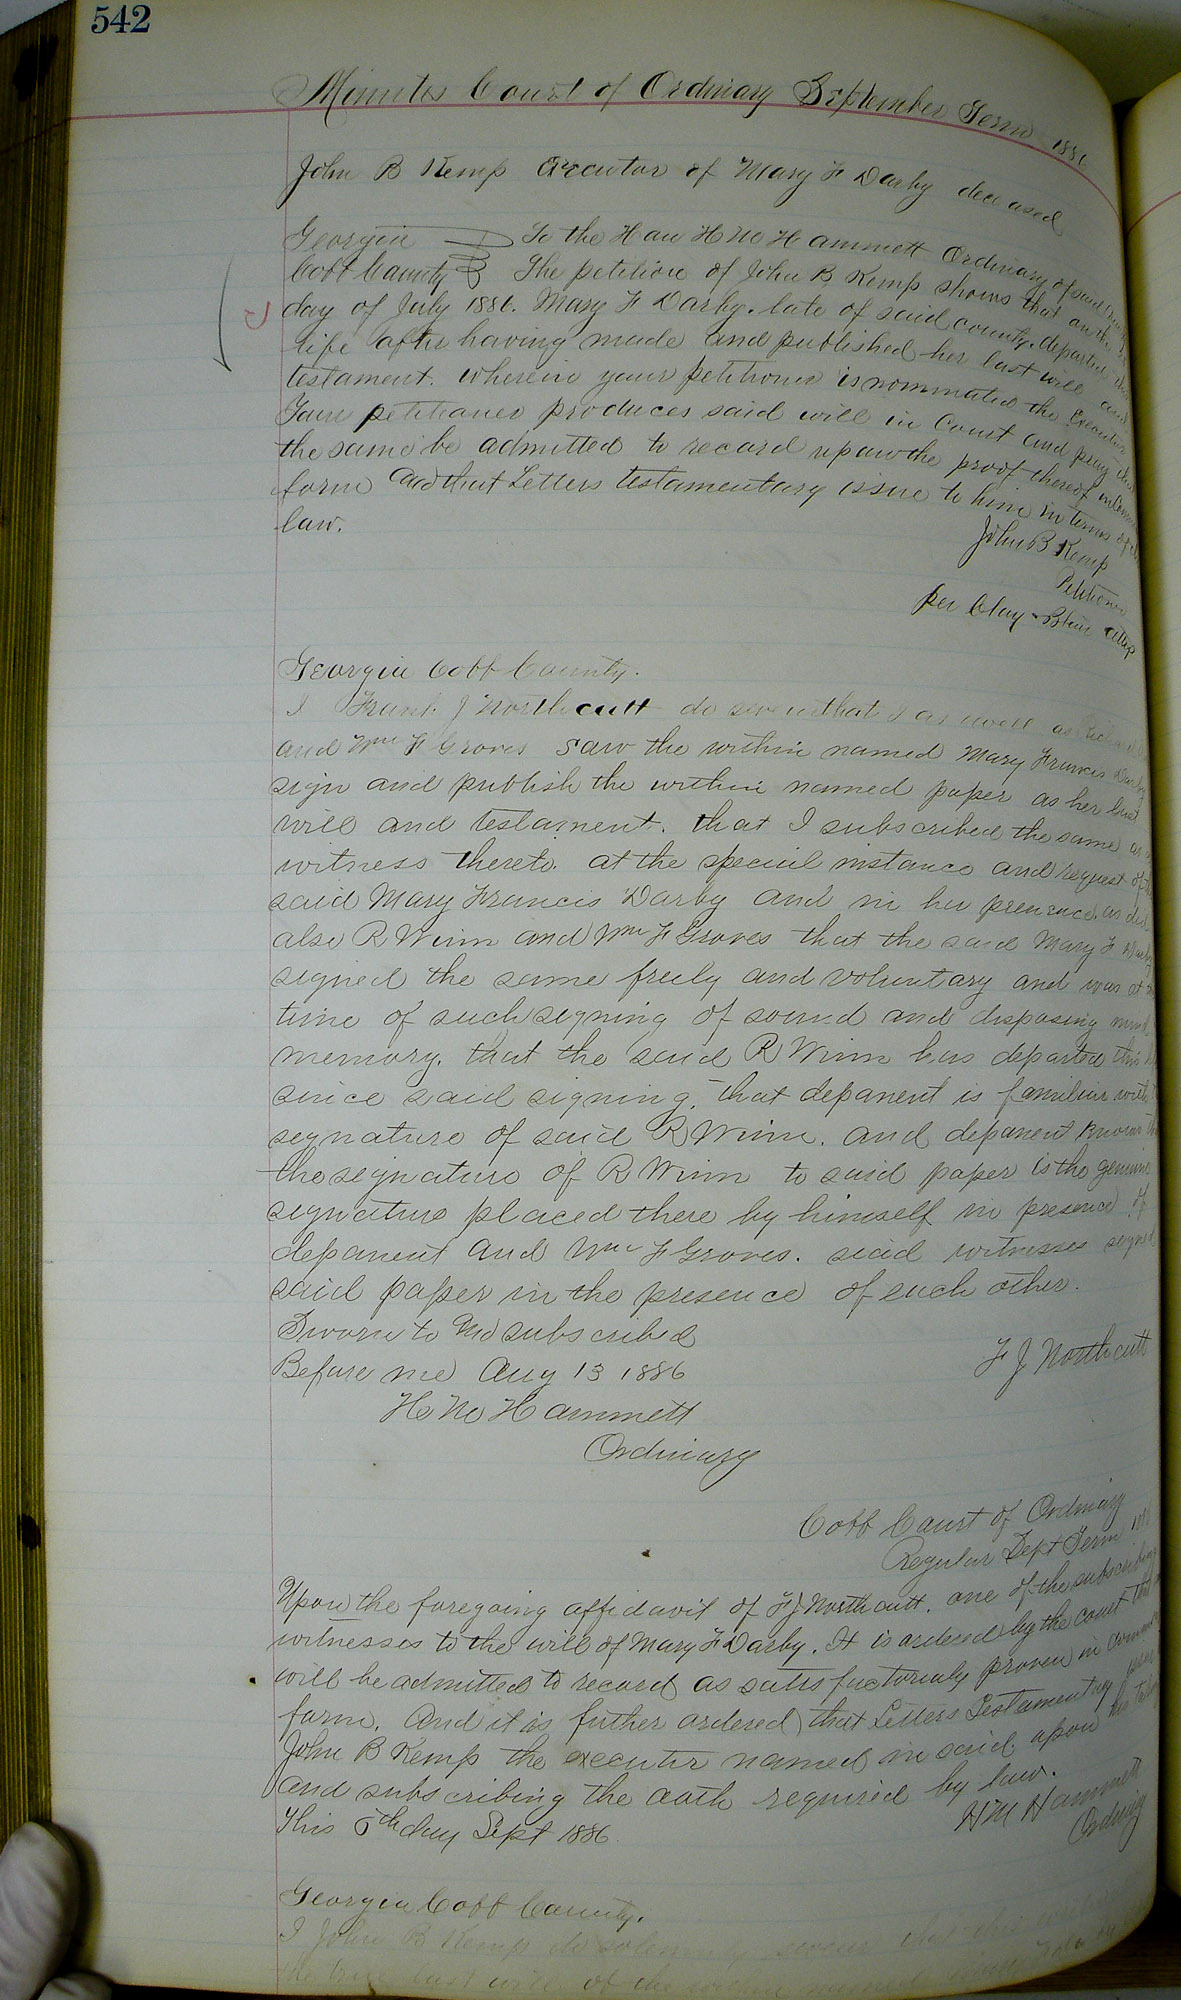 542
Minutes Court of Ordinary September Term 1886
John B Kemp Executor of Mary F Darby deceased
Georgia To the Hon H M Hammett Ordinary of said
Cobb County The petition of John B Kemp shows that on the
day of July 1886. Mary F Darby. late of said county. departed this
life after having made and published her last will and
testament. wherein your petitioner is nominated the Executor
Your petitioner produces said will in Court and pray that
the same be admitted to record upon the proof thereof in
form and that Letters testamentary issue to him in terms of the
law.
John B Kemp
Petitioner
per Clay & Blair attys
Georgia Cobb County.
I Frank J Northcutt do swear that I as well as
and Wm F Groves saw the within named Mary Francis Darby
sign and publish the within named paper as her last
will and testament. that I subscribed the same as
witness thereto. at the special instance and request of
said Mary Francis Darby and in her presence. as did
also R Winn and Wm F Groves that the said Mary F Darby
signed the same freely and voluntary and was at
time of such signing of sound and disposing mind
memory. that the said R Winn has departed this
since said signing. that deponent is familiar with
segnature of said R Winn. and deponent knows
the segnature of R Winn to said paper is the genuine
segnature placed there by himself in presence of
deponent and Wm F Groves. said witnesses signed
said paper in the presence of each other.
Sworn to and subscribed
Before me Aug 13 1886
F J Northcutt
H M Hammett
Ordinary
Cobb Court of Ordinary
Regular Sept Term
Upon the foregoing affidavit of F J Northcutt. one of the subscribing
witnesses to the will of Mary F Darby. It is ordered by the court that
will be admitted to record as satisfactorialy proven in
form. And it is futher ordered that Letters Testamentary
John B Kemp the executir named in said upon his
and subscribing the oath required by law.
This 6th day Sept 1886.
H M Hammett
Ordinary
Georgia Cobb County.
I John B Kemp do solemnly swear that this
the true last will of the within named